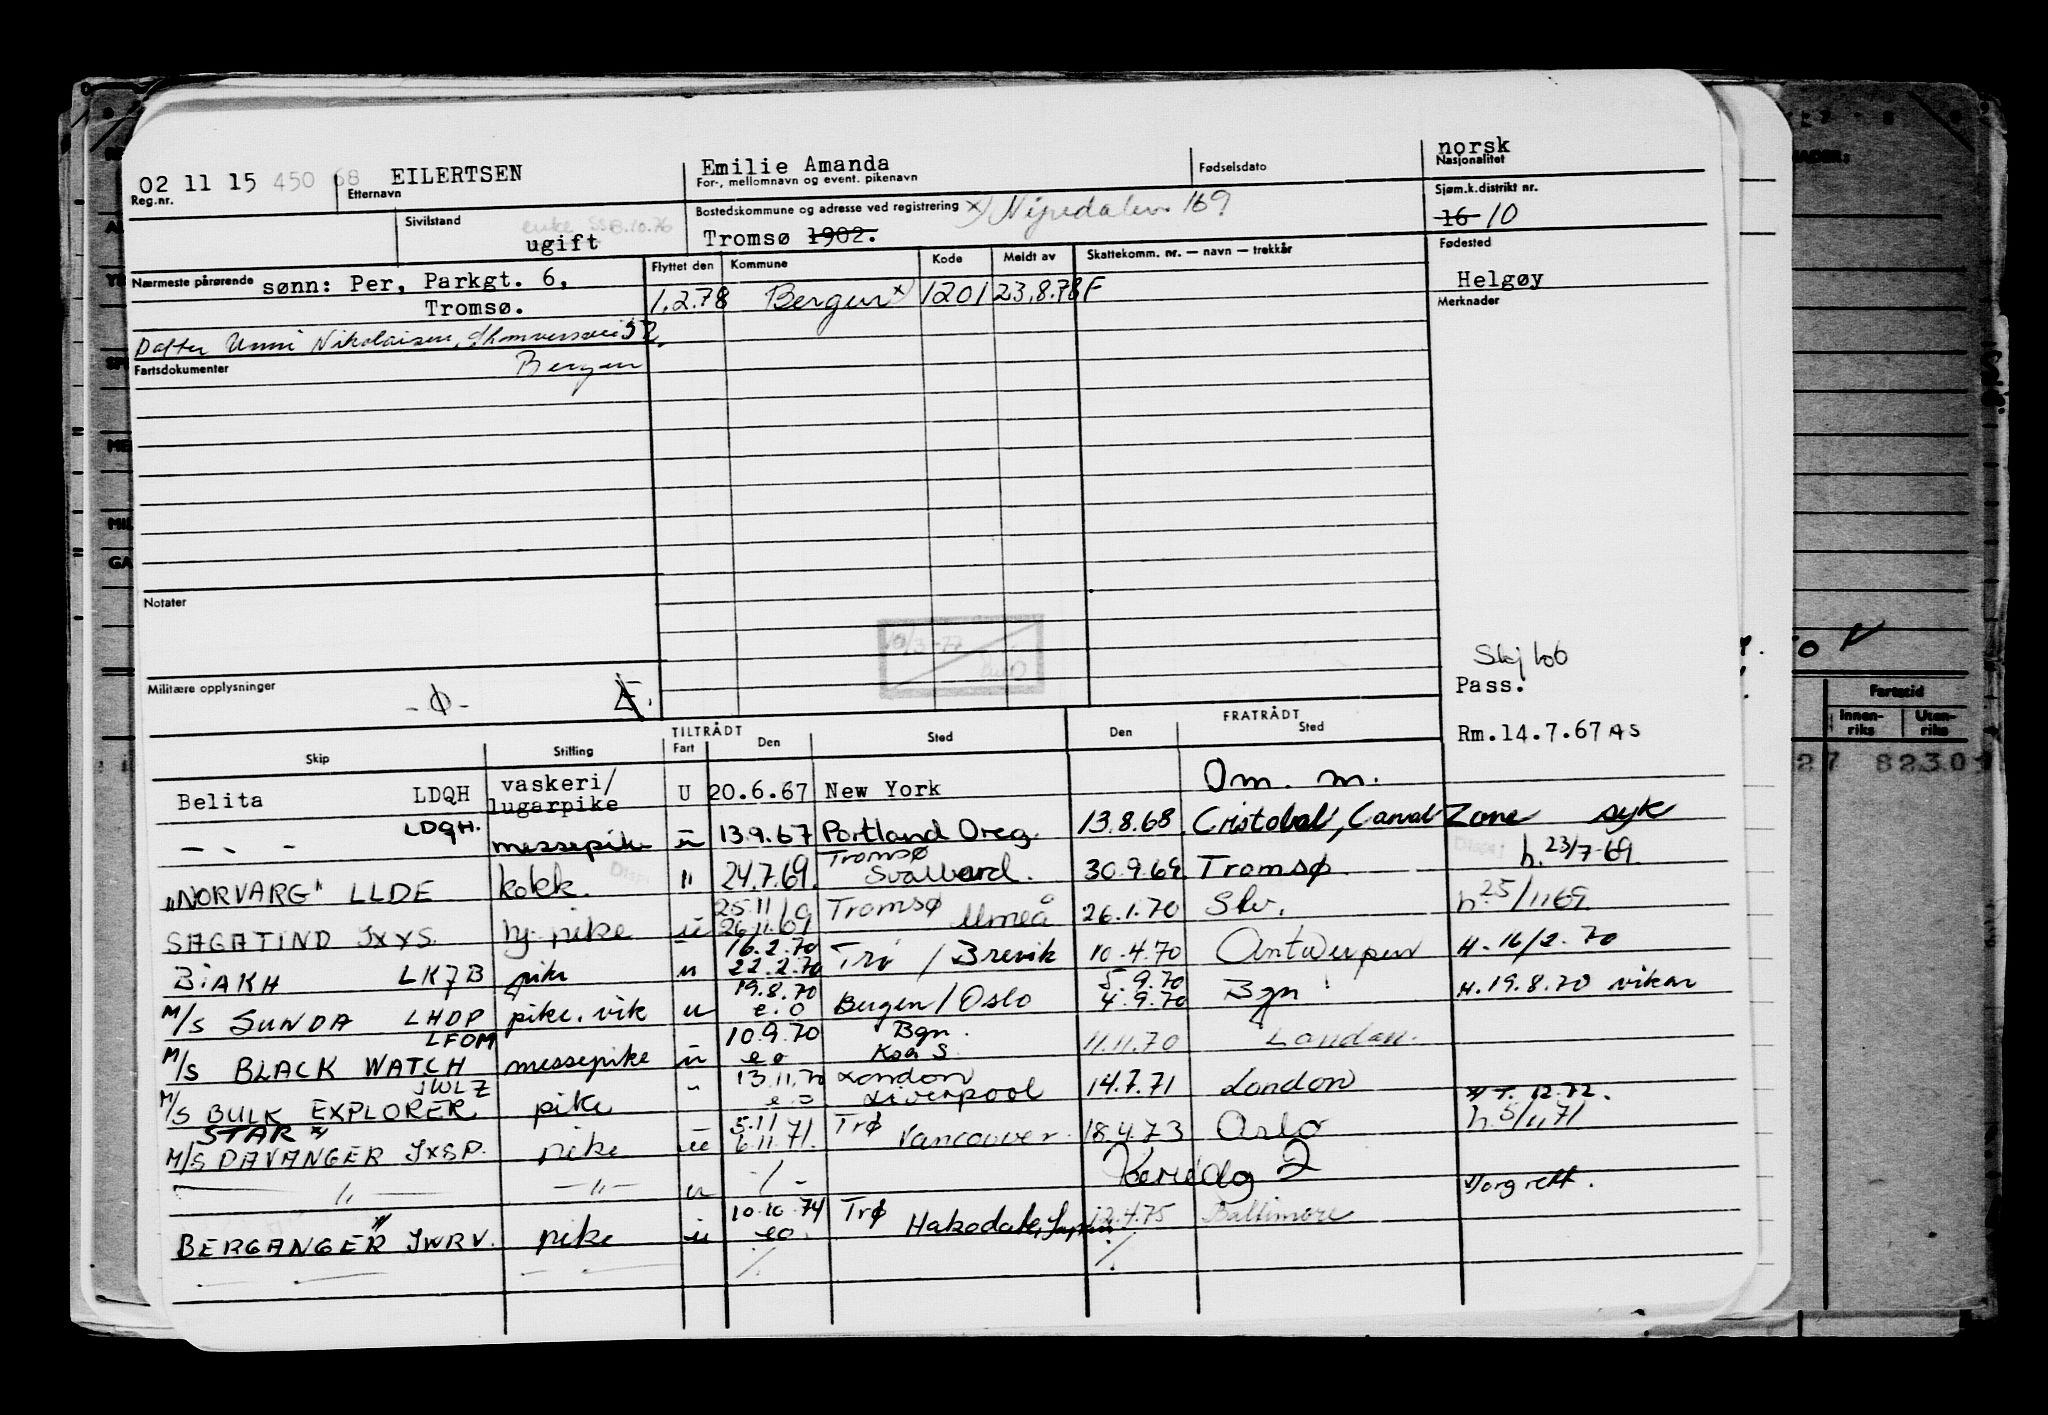 02 11 15 450 68 EILERTSEN Emilie Amanda norsk
Reg.nr. Etternavn For-, mellomnavn og event. pikenavn Fødselsdato Nasjonalitet
Sivilstand Bostedskommune og adresse ved registrering x) Nipedalen 169 Sjøm.k.distrikt nr.
enke SSB.10.76 16 10
ugift Tromsø 1902. Fødested
Nærmeste pårørende sønn: Per, Parkgt. 6, Flyttet den Kommune Kode Meldt av Skattekomm. nr. — navn — trekkår Helgøy
Tromsø. 1.2.78 Bergen x) 1201 23.8.78 F Merknader
Datter Unni Nikolaisen, 52,
Fartsdokumenter Bergen
Notater
10/3-77
Skj 606
Militære opplysninger -ϕ- Pass.
Rm.14.7.67 AS
TILTRÅDT FRATRÅDT
Skip Stilling Fart Den Sted Den Sted
Belita LDQH vaskeri/ lugarpike U 20.6.67 New York Om. m.
— " — LDQH. messepike u 13.9.67 Portland Oreg. 13.8.68. Cristobal, Canal Zone syk
"NORVARG" LLDE kokk. " 24.7.69. Tromsø Svalbard. 30.9.69. Tromsø. h. 23/7-69.
SAGATIND JXYS. bj. pike u 25.11 26.11.69 Tromsø Umeå 26.1.70 Slv. h. 25/11 69.
BIAKH LKJB pike u 16.2.70 22.2.70 Trø / Brevik 10.4.70 Antwerpen H. 16/2.70
M/S SUNDA LHDP pike. vik u 19.8.70 e.o Bergen/Oslo 5.9.70 4.9.70 Bgn H. 19.8.70 vikar
M/S BLACK WATCH LFOM messepike u 10.9.70 eo Bgn. Koa S. 11.11.70 London.
M/S BULK EXPLORER JWLZ pike " 13.11.70 e.o London Liverpool 14.7.71 London x) T. 12.72.
M/S STAR x) DAVANGER JXSP. pike u 5.11 6.11.71. Trø Vancouver. 18.4.73 Oslo h. 5/11 71
— " — — " — u -/- Periode 2
BERGANGER x) JWRV. pike u 10.10.74 eo. Trø Hakodate, Japan 12.4.75 Baltimore x) org rett.
— " — — " — ./. ./.
Fartstid
Innen-riks Uten-riks
27 8230